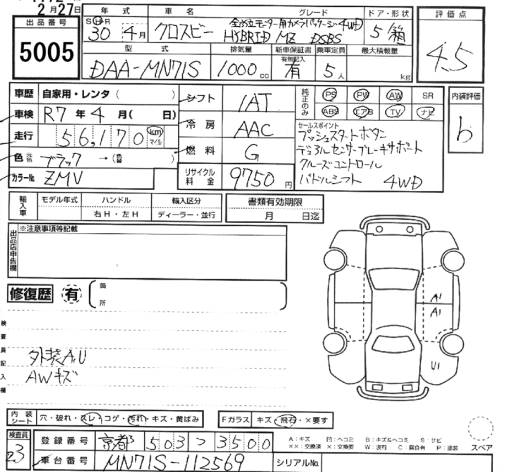 2月27日
出品番号
5005
年式 車名 グレード ドア・形状
S H R 30年 4月 クロスビー 全方位モニター用カメラパッケージ 4WD 5 箱
HYBRID MZ DSBS
型式 排気量 新車保証書 乗車定員 最大積載量
有無記入
DAA-MN71S 1000cc 有 5人 kg
評価点
4.5
車歴 自家用・レンタ( )
車検 R7年 4月( 日)
走行 56,170 km マイル
色 ブラック →( 色)
カラーNo. ZMV
シフト IAT
冷房 AAC
燃料 G
リサイクル料金 9750円
純正のみ PS PW AW SR
ABS エアB TV ナビ
セールスポイント
プッシュスタートボタン
デュアルセンサーブレーキサポート
クルーズコントロール
パドルシフト 4WD
内装評価
b
輸入車 モデル年式 ハンドル 輸入区分
右H・左H ディーラー・並行
書類有効期限
月 日迄
出品店申告欄
※注意事項等記載
修復歴 有 箇所
検査員記入欄
外装A,U
AWキズ
A1
A1
U1
内装シート 穴・破れ・スレ・コゲ・汚れ・キズ・黄ばみ
Fガラス キズ・飛石・×要す
検査員
23
登録番号 京都 503 つ 3500
車台番号 MN71S-112569
シリアルNo.
A:キズ U:ヘコミ B:キズ&ヘコミ S:サビ
××:交換済 ×:交換要 W:波打 C:腐食有 P:塗装
スペア